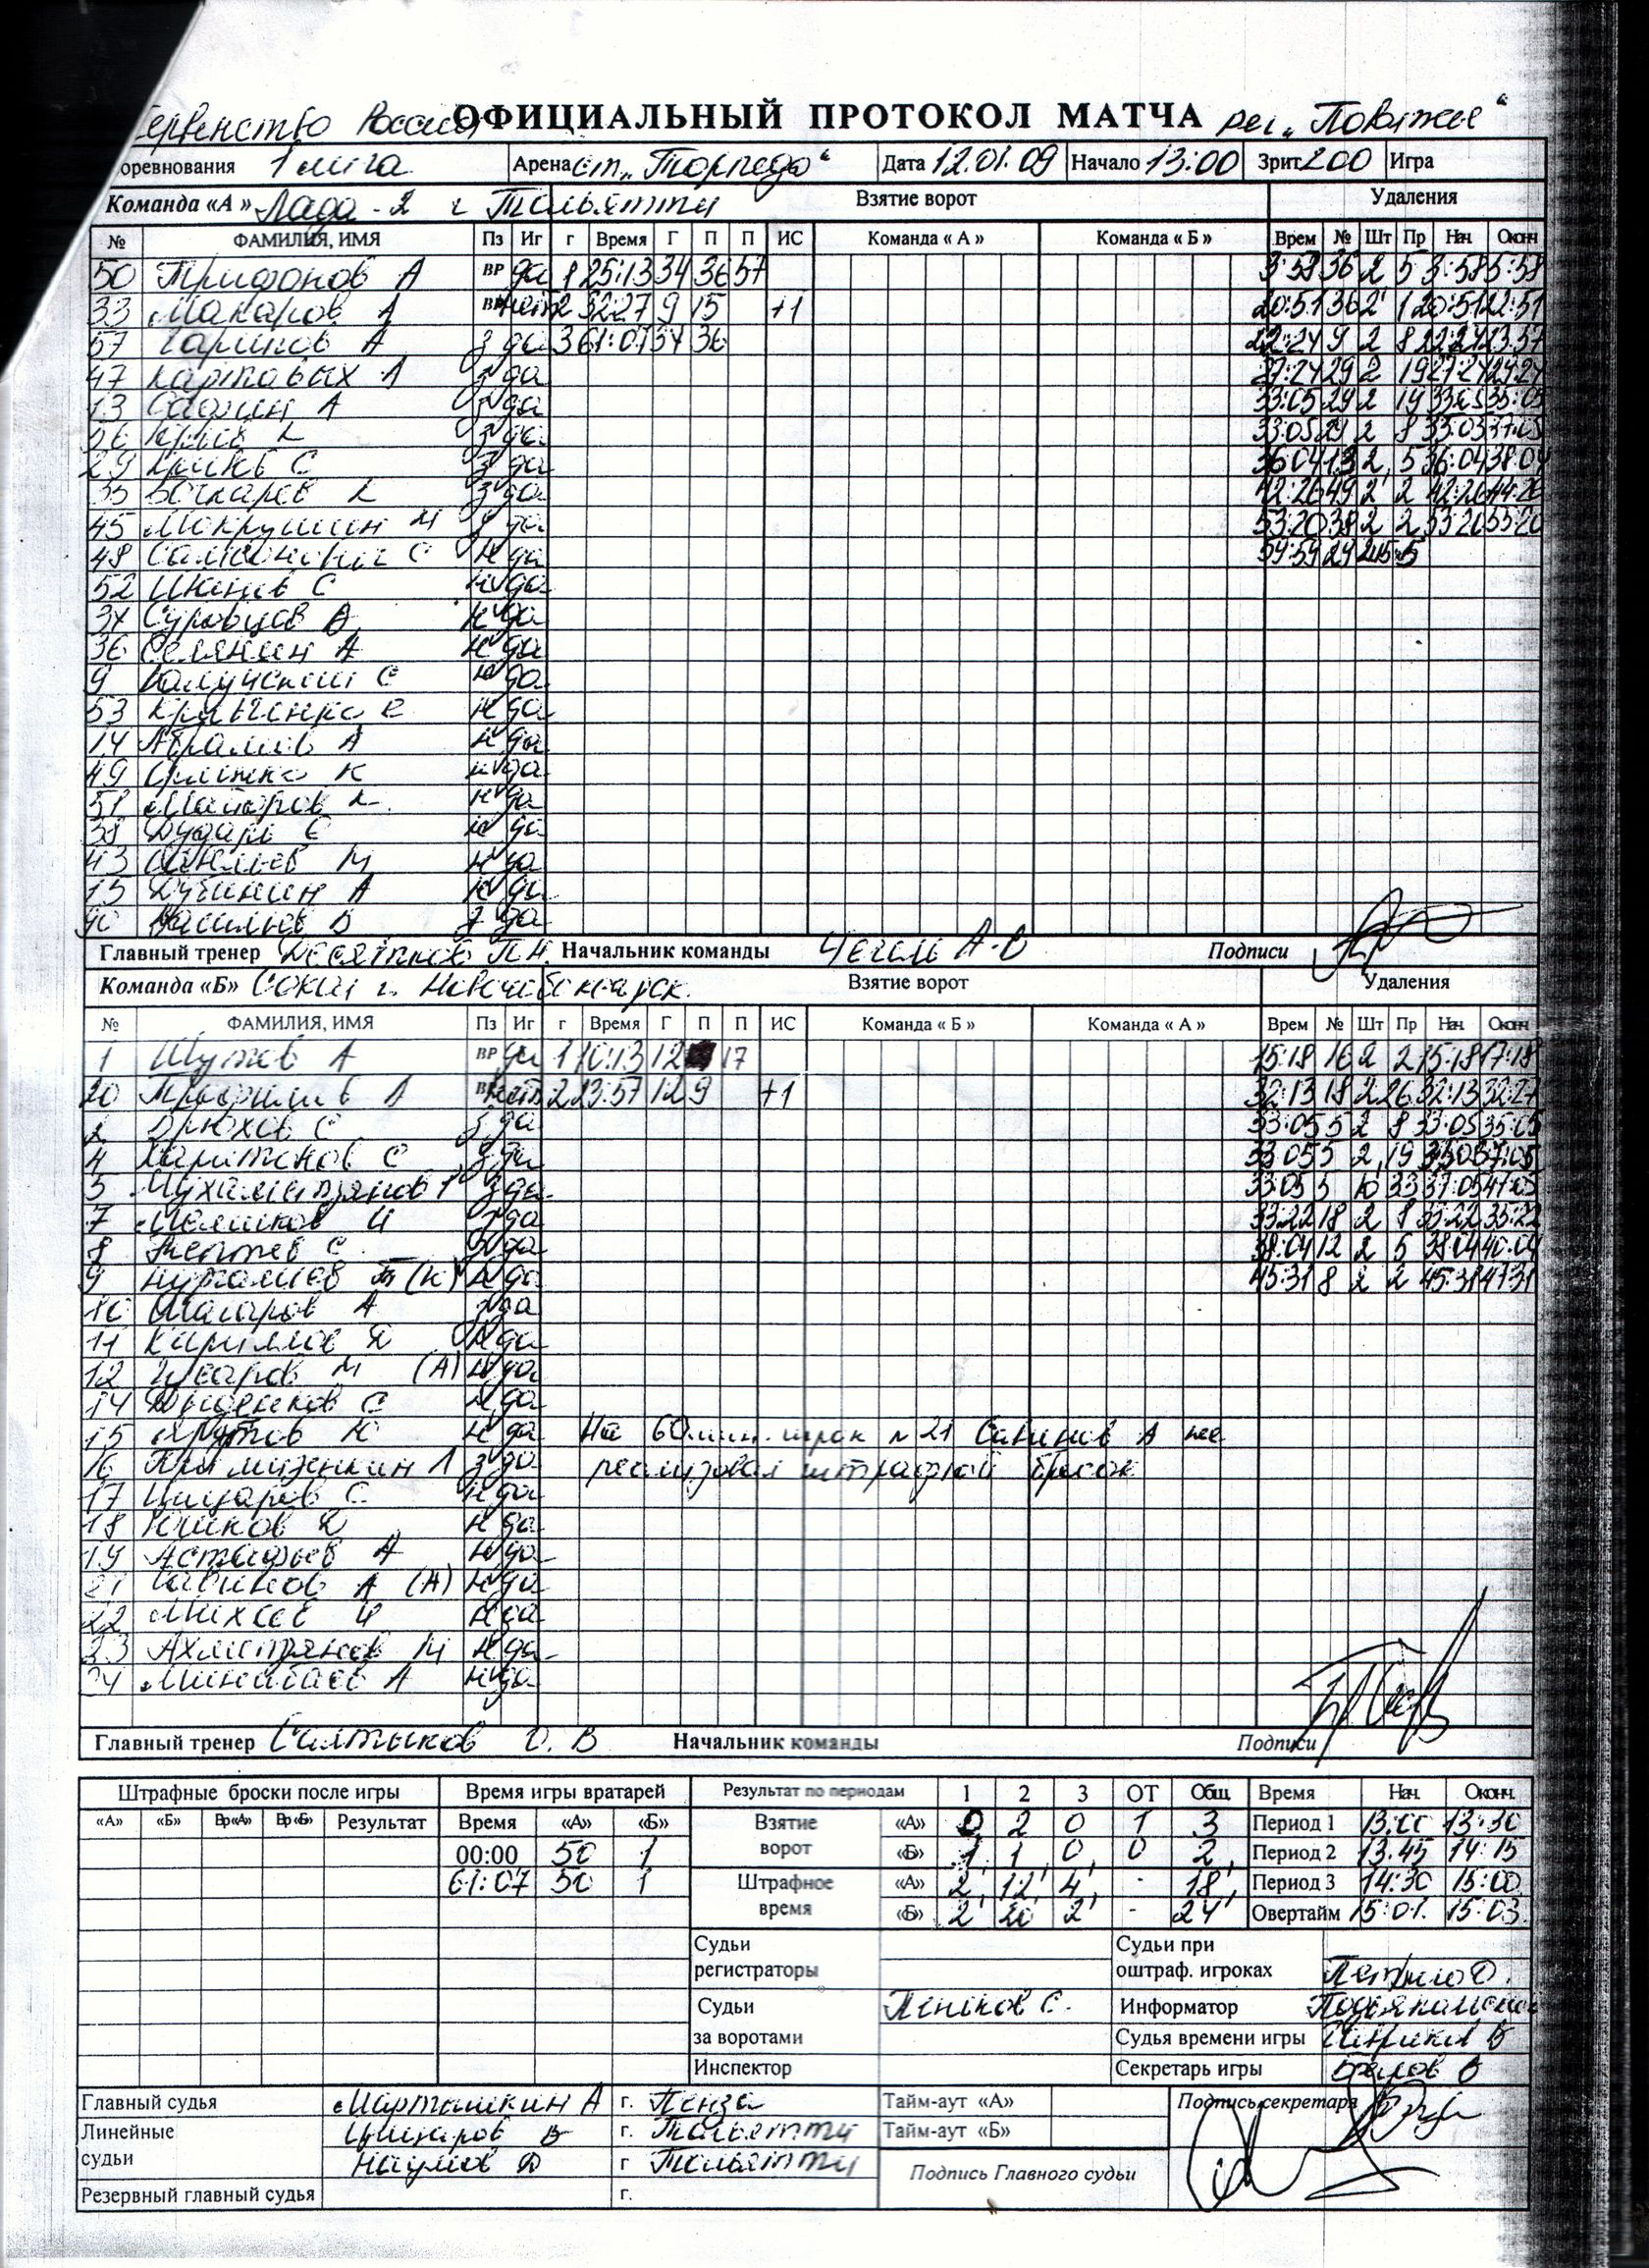 ервенство России ОФИЦИАЛЬНЫЙ ПРОТОКОЛ МАТЧА рег. „Поволжье“
оревнования 1 лига Арена ст. „Торпедо“ Дата 12.01.09 Начало 13:00 Зрит. 200 Игра
Команда «А» Лада-2 г Тольятти Взятие ворот Удаления
№ ФАМИЛИЯ, ИМЯ Пз Иг г Время Г П П ИС Команда « А » Команда « Б » Врем № Шт Пр Нач Оконч
50 Трифонов А ВР да 1 25:13 34 36 57 3:58 36 2 5 3:58 5:58
33 Макаров А ВР нет 2 32:27 9 15 +1 20:51 36 2 1 20:51 22:51
57 Гарипов А з да 3 61:07 34 36 22:24 9 2 8 22:24 23:57
47 Картавых Л з да 27:24 29 2 19 27:24 29:24
13 Сафин А з да 33:05 29 2 19 33:05 35:05
26 з да 33:05 29 2 8 33:05 37:05
29 Крюков С з да 36:04 13 2 5 36:04 38:04
35 Бочкарев К з да 42:26 49 2 2 42:26 44:26
45 Мокрушин М з да 53:20 38 2 2 53:20 55:20
48 С н да 59:59 29
52 С н да
34 Суровцов А н да
36 Селянин А н да
9 С н да
53 Кравченко Е н да
14 Абрамов А н да
49 К н да
51 Майоров н да
38 н да
43 М н да
15 Дубинин А н да
90 Васильев В з да
Главный тренер Десятков П.Н. Начальник команды Подписи
Команда «Б» Сокол г. Новочебоксарск. Взятие ворот Удаления
№ ФАМИЛИЯ, ИМЯ Пз Иг г Время Г П П ИС Команда « Б » Команда « А » Врем № Шт Пр Нач. Оконч
1 Шутов А ВР да 1 10:13 12 17 15:18 16 2 2 15:18 17:18
20 Трофимов А ВР нет 2 23:57 12 9 +1 32:13 18 2 26 32:13 32:27
2 Брюхов С з да 33:05 5 2 8 33:05 35:05
4 Харитонов С з да 33:05 5 2 19 35:05 37:05
5 Мухаметзянов Г з да 33:05 5 10 33 37:05 47:05
7 Мешков И з да 33:22 18 2 8 33:22 35:22
8 С з да 38:04 12 2 5 38:04 40:04
9 Нургалиев Т (К) н да 45:31 8 2 2 45:31 47:31
10 А з да
11 Каримов Д н да
12 М (А) н да
14 Диденков С н да
15 Ю н да На 60 мин. игрок № 21 Савинов А не
16 Примизенкин Л з да реализовал штрафной бросок
17 Цицаров С н да
18 Юнков Д н да
19 Астафьев А н да
21 Савинов А (А) н да
22 Михеев И н да
23 Ахметзянов М н да
24 Минабаев А н да
Главный тренер Салтыков О. В Начальник команды Подписи
Штрафные броски после игры Время игры вратарей Результат по периодам 1 2 3 ОТ Общ. Время Нач. Оконч.
«А» «Б» Вр«А» Вр«Б» Результат Время «А» «Б» Взятие ворот «А» 0 2 0 1 3 Период 1 13:00 13:30
00:00 50 1 «Б» 1 1 0 0 2 Период 2 13.45 14:15
61:07 50 1 Штрафное время «А» 2 12 4 - 18 Период 3 14:30 15:00
«Б» 2 20 2 - 24 Овертайм 15:01 15:03
Судьи регистраторы Судьи при оштраф. игроках
Судьи за воротами Пеньков С. Информатор
Судья времени игры
Инспектор Секретарь игры Белов В
Главный судья Марташкин А г. Пенза Тайм-аут «А» Подпись секретаря
Линейные судьи Цицаров В г. Тольятти Тайм-аут «Б»
Наумов Д г Тольятти Подпись Главного судьи
Резервный главный судья г.